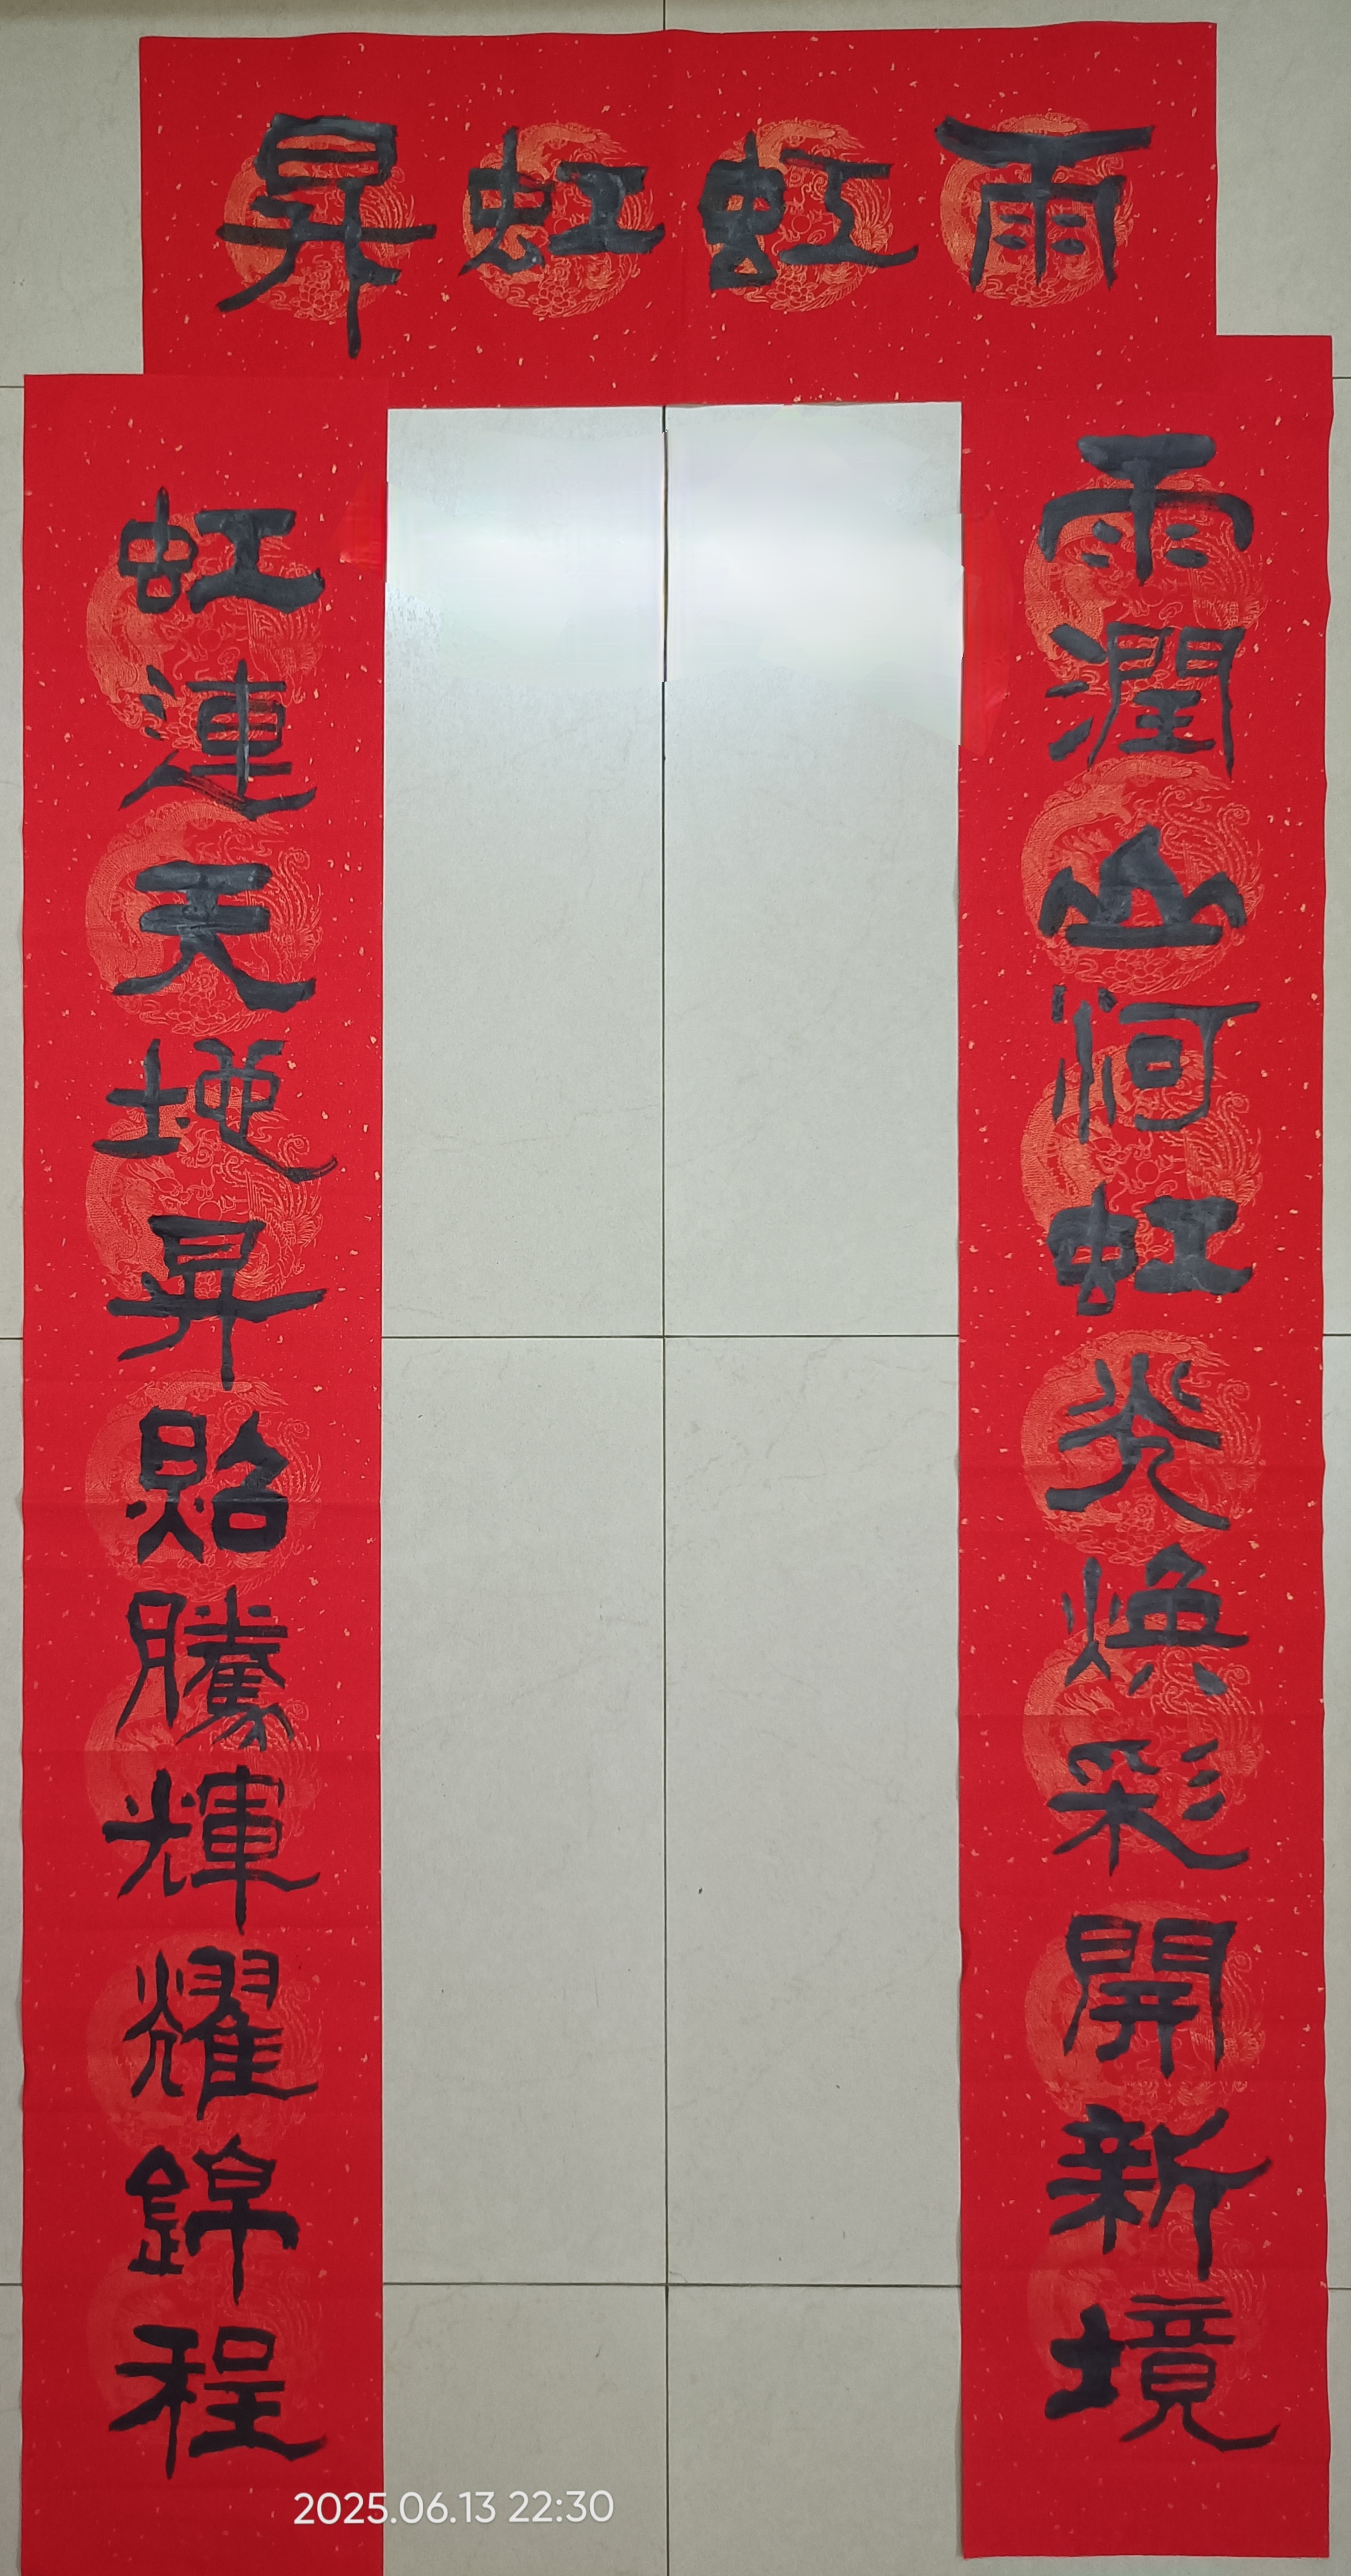 雨虹虹昇
雨潤山河虹光煥彩開新境
虹連天地昇貽騰輝耀錦程
2025.06.13 22:30